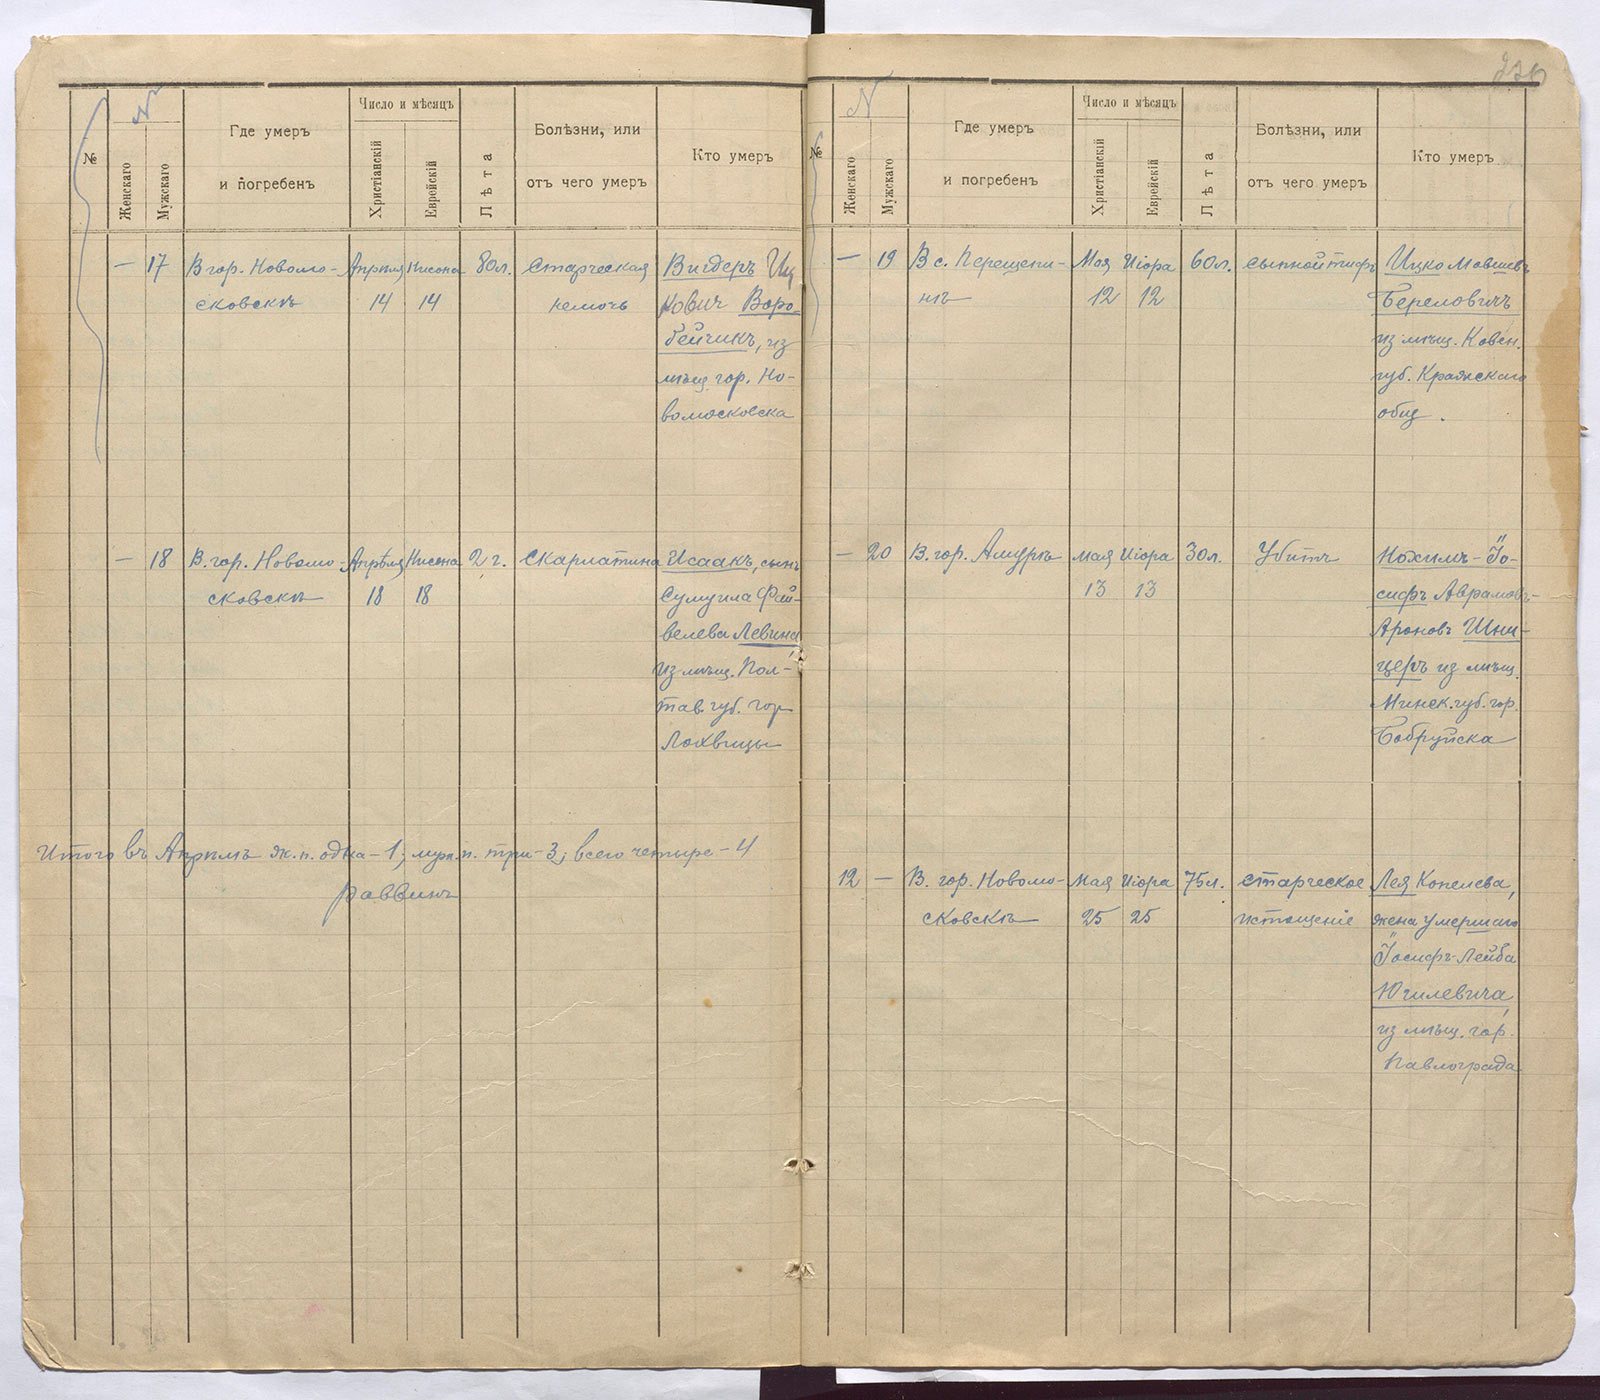 №
N
Женскаго
Мужскаго
Где умеръ
и погребенъ
Число и мѣсяцъ
Христіанскій
Еврейскій
Лѣта
Болѣзни, или
отъ чего умеръ
Кто умеръ
— 17 В гор. Новомо- Апрѣля Нисона 80 л. Старческая Вигдеръ Иц
сковскѣ 14 14 немочь кович Воро-
бейчикъ, из
мѣщ. гор. Но-
вомосковска
— 18 В. гор. Новомо- Апрѣля Нисона 2 г. Скарлатина Исаакъ, сынъ
сковскѣ 18 18 Сумуила Фай-
велева Левина
из мѣщ. Пол-
тав. губ. гор
Лохвицы
Итого въ Апрѣлѣ ж.п. одна - 1; муж. п. три - 3; всего четыре - 4
раввинъ
№
N
Женскаго
Мужскаго
Где умеръ
и погребенъ
Число и мѣсяцъ
Христіанскій
Еврейскій
Лѣта
Болѣзни, или
отъ чего умеръ
Кто умеръ
— 19 В с. Перещепи- Мая Иіора 60 л. сыпной тифъ Ицко Мовшевъ
нѣ 12 12 Береловичъ
из мѣщ. Ковен.
губ. Кражскаго
общ.
— 20 В. гор. Амурѣ мая Иіора 30 л. Убитъ Нохимъ - Іо-
13 13 сифъ Аврамовъ-
Ароновъ Шни-
церъ из мѣщ.
Минск. губ. гор.
Бобруйска
12 — В. гор. Новомо- мая Иіора 75 л. старческое Лея Копелева,
сковскѣ 25 25 истощеніе жена умершаго
Іосифъ-Лейба
Югилевича,
из мѣщ. гор.
Павлограда